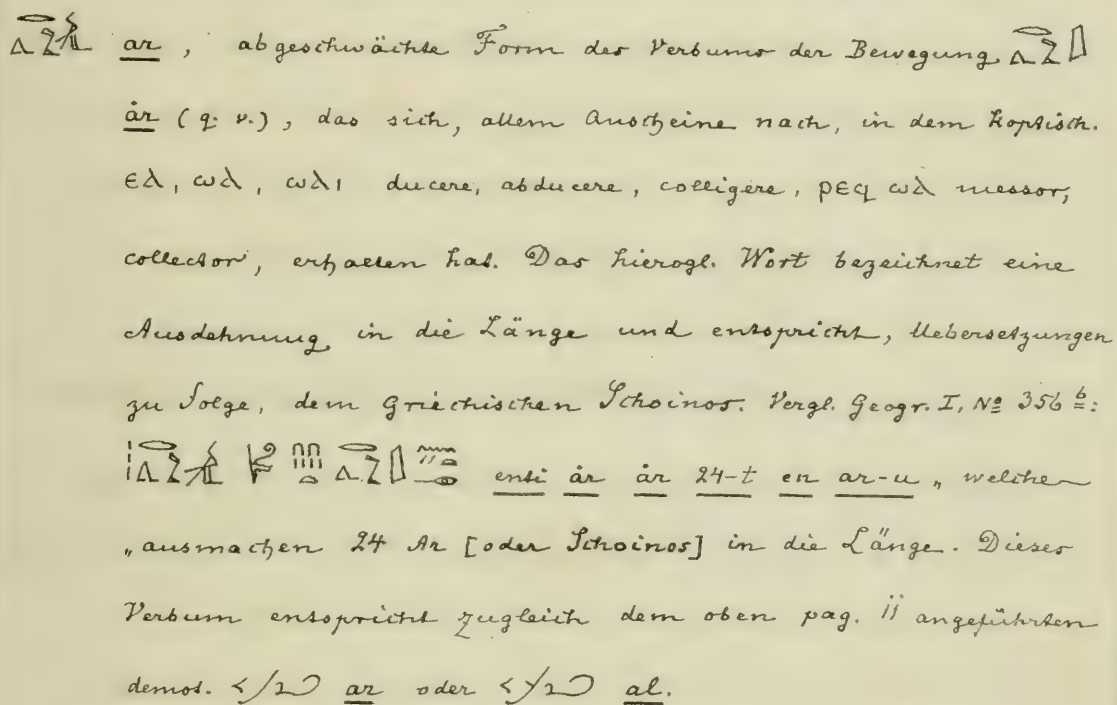 ar, abgeschwächte Form des Verbums der Bewegung
år (q. v.), das sich, allem Anscheine nach, in dem Koptisch.
ⲉⲗ, ⲱⲗ, ⲱⲗⲓ ducere, abducere, colligere, ⲣⲉϥ ⲱⲗ messor,
collector, erhalten hat. Das hierogl. Wort bezeichnet eine
Ausdehnung in die Länge und entspricht, Uebersetzungen
zu folge, dem Griechischen Schoinos. Vergl. Geogr. I, Nº 356 b:
enti år år 24-t en ar-u „welche
„ausmachen 24 Ar [oder Schoinos] in die Länge. Dieses
Verbum entspricht zugleich dem oben pag. 11 angeführten
demot. ar oder al.